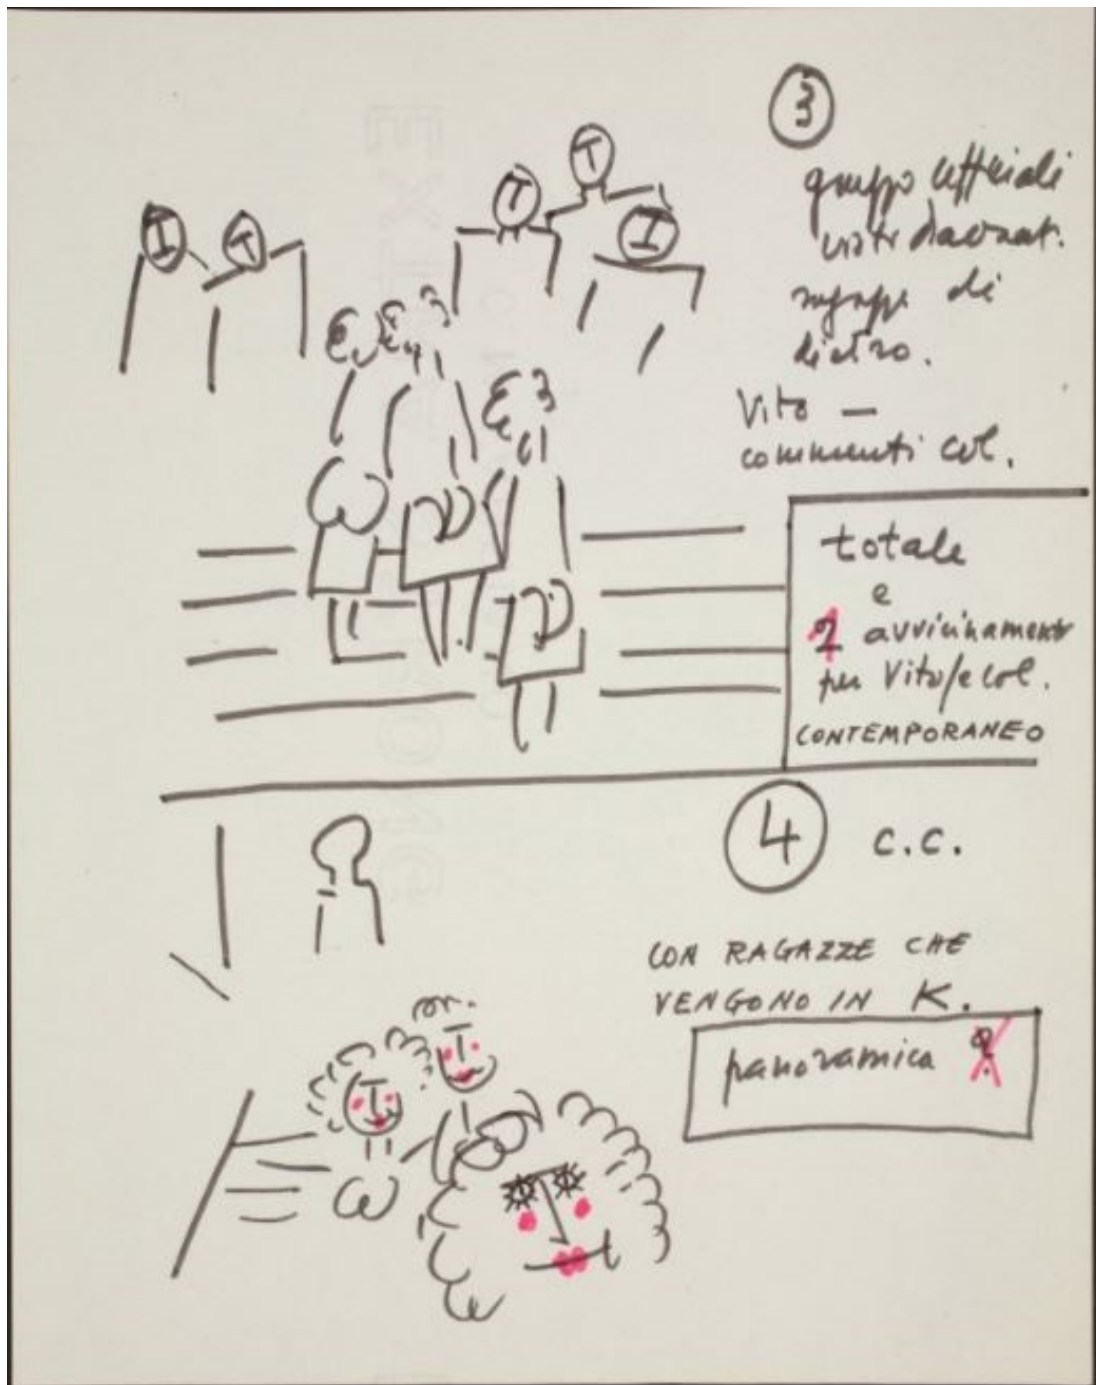 3
gruppo ufficiali
visti davant.
ragazze di
dietro.
Vito —
commenti col.
I T T T I
totale
e
1 avvicinamento
per Vito/e col.
CONTEMPORANEO
4 C.C.
CON RAGAZZE CHE
VENGONO IN K.
panoramica